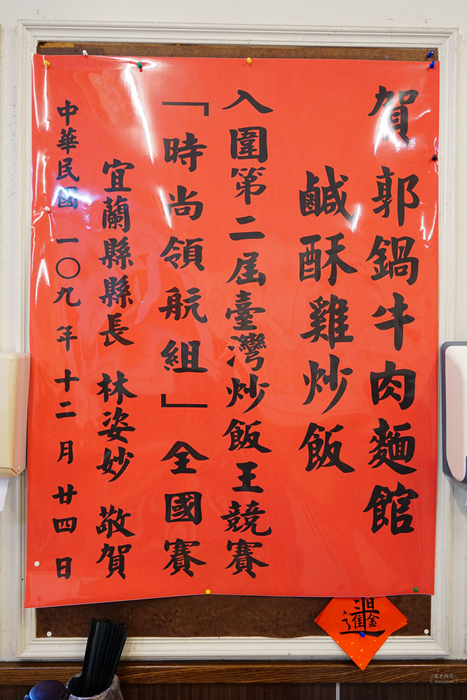 賀 郭鍋牛肉麵館
鹹酥雞炒飯
入圍第二屆臺灣炒飯王競賽
「時尚領航組」全國賽
宜蘭縣縣長 林姿妙 敬賀
中華民國 一〇九年 十二月 廿四日